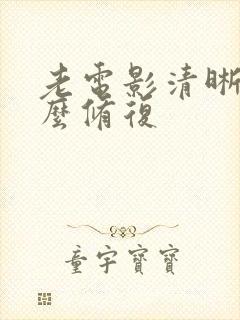 老電影清晰
麼脩復
童宇寶寶